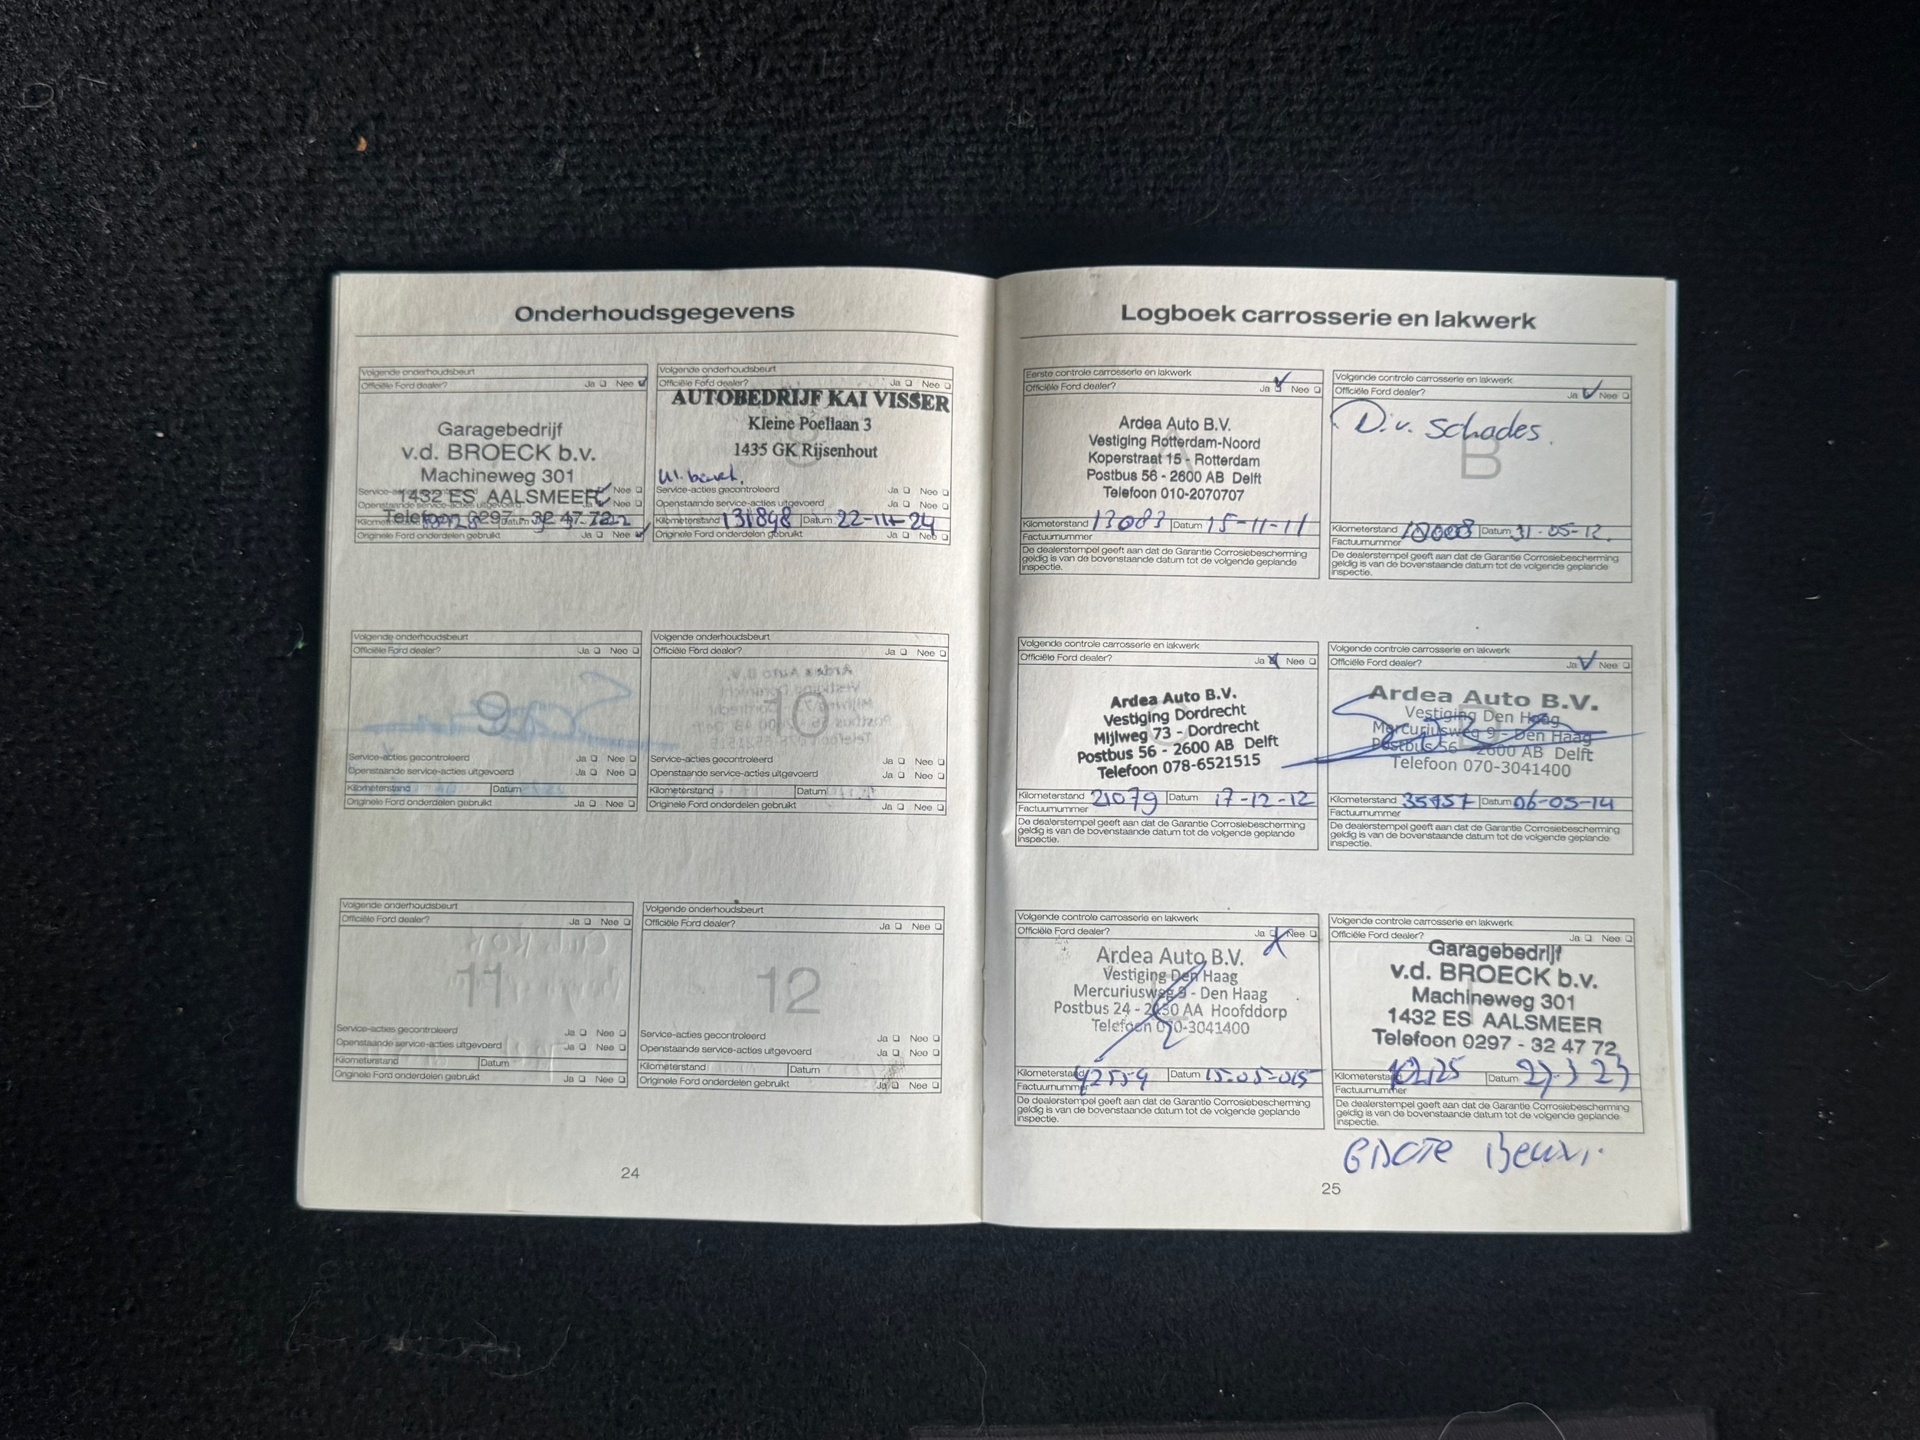 Onderhoudsgegevens
Volgende onderhoudsbeurt
Officiële Ford dealer? Ja Nee
Garagebedrijf
v.d. BROECK b.v.
Machineweg 301
1432 ES AALSMEER
Telefoon 0297 - 32 47 72
Originele Ford onderdelen gebruikt Ja Nee
Volgende onderhoudsbeurt
Officiële Ford dealer? Ja Nee
AUTOBEDRIJF KAI VISSER
Kleine Poellaan 3
1435 GK Rijsenhout
Service-acties gecontroleerd Ja Nee
Openstaande service-acties uitgevoerd Ja Nee
Kilometerstand 131898 Datum 22-11-24
Originele Ford onderdelen gebruikt Ja Nee
Volgende onderhoudsbeurt
Officiële Ford dealer? Ja Nee
9
Service-acties gecontroleerd Ja Nee
Openstaande service-acties uitgevoerd Ja Nee
Kilometerstand Datum
Originele Ford onderdelen gebruikt Ja Nee
Volgende onderhoudsbeurt
Officiële Ford dealer? Ja Nee
10
Service-acties gecontroleerd Ja Nee
Openstaande service-acties uitgevoerd Ja Nee
Kilometerstand Datum
Originele Ford onderdelen gebruikt Ja Nee
Volgende onderhoudsbeurt
Officiële Ford dealer? Ja Nee
11
Service-acties gecontroleerd Ja Nee
Openstaande service-acties uitgevoerd Ja Nee
Kilometerstand Datum
Originele Ford onderdelen gebruikt Ja Nee
Volgende onderhoudsbeurt
Officiële Ford dealer? Ja Nee
12
Service-acties gecontroleerd Ja Nee
Openstaande service-acties uitgevoerd Ja Nee
Kilometerstand Datum
Originele Ford onderdelen gebruikt Ja Nee
24
Logboek carrosserie en lakwerk
Eerste controle carrosserie en lakwerk
Officiële Ford dealer? Ja Nee
Ardea Auto B.V.
Vestiging Rotterdam-Noord
Koperstraat 15 - Rotterdam
Postbus 56 - 2600 AB Delft
Telefoon 010-2070707
Kilometerstand 13083 Datum 15-11-11
Factuurnummer
De dealerstempel geeft aan dat de Garantie Corrosiebescherming
geldig is van de bovenstaande datum tot de volgende geplande
inspectie.
Volgende controle carrosserie en lakwerk
Officiële Ford dealer? Ja Nee
Div. Schades.
B
Kilometerstand Datum 31-05-12.
Factuurnummer
De dealerstempel geeft aan dat de Garantie Corrosiebescherming
geldig is van de bovenstaande datum tot de volgende geplande
inspectie.
Volgende controle carrosserie en lakwerk
Officiële Ford dealer? Ja Nee
Ardea Auto B.V.
Vestiging Dordrecht
Mijlweg 73 - Dordrecht
Postbus 56 - 2600 AB Delft
Telefoon 078-6521515
Kilometerstand 21079 Datum 17-12-12
Factuurnummer
De dealerstempel geeft aan dat de Garantie Corrosiebescherming
geldig is van de bovenstaande datum tot de volgende geplande
inspectie.
Volgende controle carrosserie en lakwerk
Officiële Ford dealer? Ja Nee
Ardea Auto B.V.
Vestiging Den Haag
Mercuriusweg 9 - Den Haag
Postbus 56 - 2600 AB Delft
Telefoon 070-3041400
Kilometerstand 35957 Datum 06-05-14
Factuurnummer
De dealerstempel geeft aan dat de Garantie Corrosiebescherming
geldig is van de bovenstaande datum tot de volgende geplande
inspectie.
Volgende controle carrosserie en lakwerk
Officiële Ford dealer? Ja Nee
Ardea Auto B.V.
Vestiging Den Haag
Mercuriusweg 9 - Den Haag
Postbus 24 - 2130 AA Hoofddorp
Telefoon 070-3041400
Kilometerstand 42559 Datum 15-05-015
Factuurnummer
De dealerstempel geeft aan dat de Garantie Corrosiebescherming
geldig is van de bovenstaande datum tot de volgende geplande
inspectie.
Volgende controle carrosserie en lakwerk
Officiële Ford dealer? Ja Nee
Garagebedrijf
v.d. BROECK b.v.
Machineweg 301
1432 ES AALSMEER
Telefoon 0297 - 32 47 72
Kilometerstand Datum 27-3 23
Factuurnummer
De dealerstempel geeft aan dat de Garantie Corrosiebescherming
geldig is van de bovenstaande datum tot de volgende geplande
inspectie.
GROTE Beurt.
25